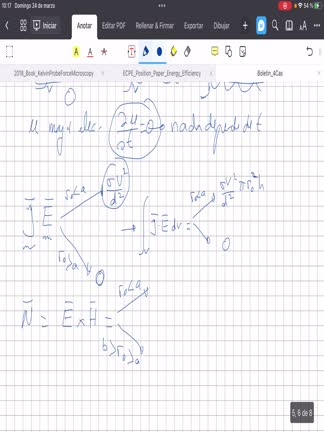 10:17 Domingo 24 de marzo
54 %
Archivo Inicio Anotar Editar PDF Rellenar & Firmar Exportar Dibujar
2018_Book_KelvinProbeForceMicroscopy ECPE_Position_Paper_Energy_Efficiency Boletin_4Cas
0
u mag y elec. ∂u/∂t = 0 nada depende de t
J̅ E̅
r₀<a σV²/d²
r₀>a 0
→ ∫ J̅·E̅ dv =
r₀<a σV²/d² π r₀² h
0
N̅ = E̅ × H̅ =
r₀<a
b>r₀>a
5, 6 de 8